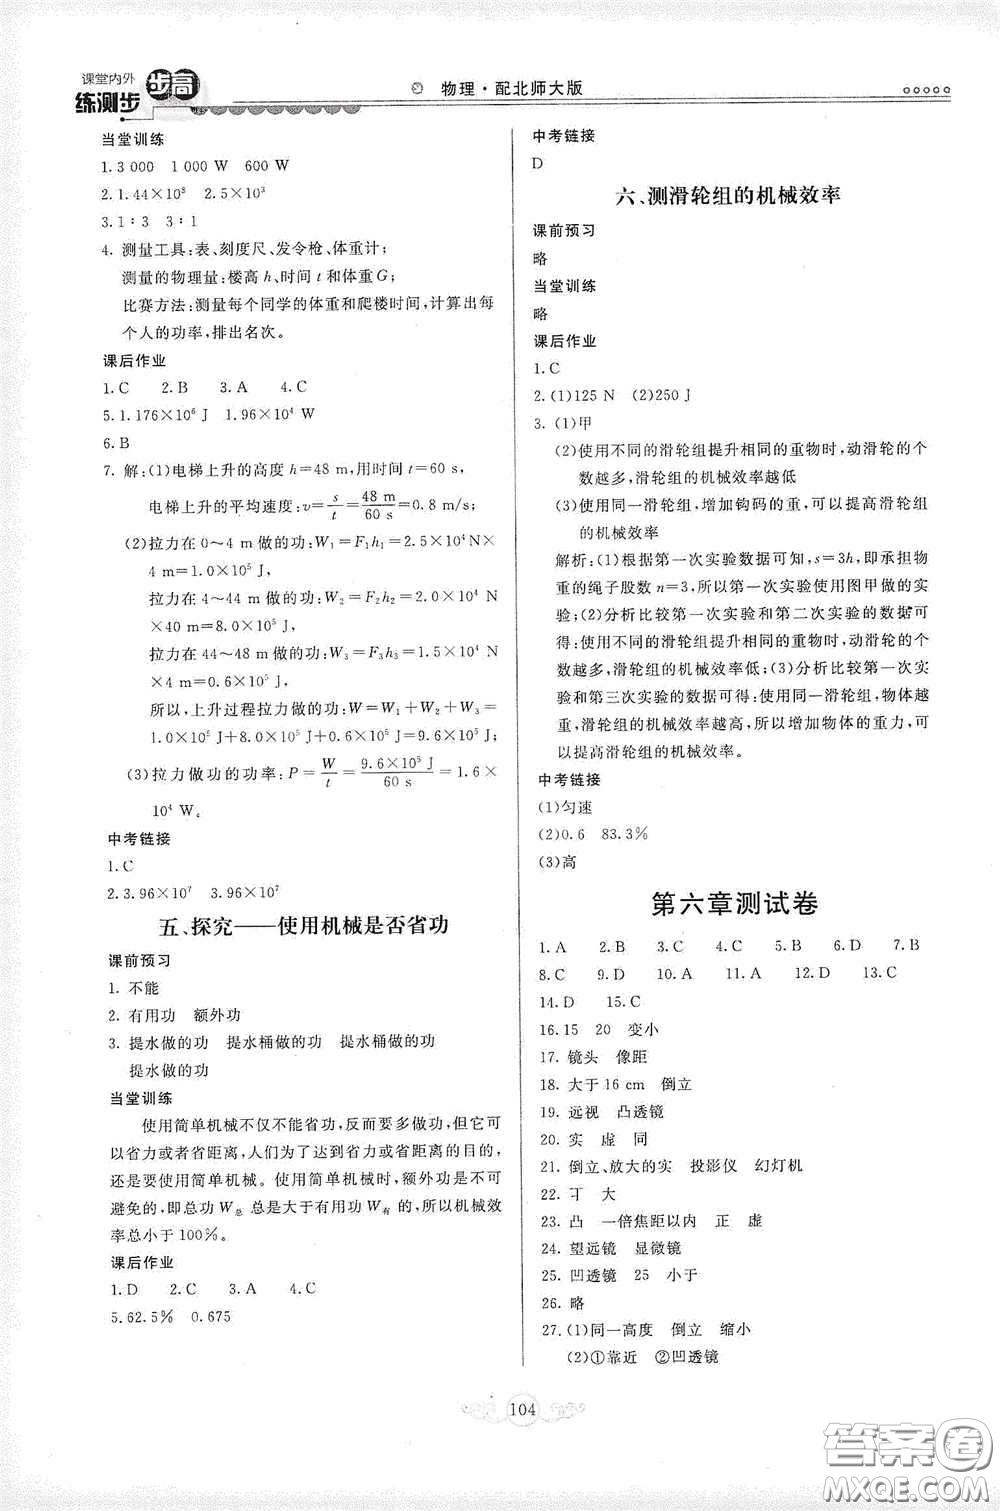 课堂内外
练测步步高
物理·配北师大版
当堂训练
1.3 000  1 000 W  600 W
2.1.44×10⁸  2.5×10³
3.1∶3  3∶1
4. 测量工具:表、刻度尺、发令枪、体重计;
测量的物理量:楼高 h、时间 t 和体重 G;
比赛方法:测量每个同学的体重和爬楼时间,计算出每
个人的功率,排出名次。
课后作业
1.C  2.B  3.A  4.C
5.1.176×10⁶ J  1.96×10⁴ W
6.B
7. 解:(1)电梯上升的高度 h=48 m,用时间 t=60 s,
电梯上升的平均速度:v=s/t=48 m/60 s=0.8 m/s;
(2)拉力在 0～4 m 做的功:W₁=F₁h₁=2.5×10⁴ N×
4 m=1.0×10⁵ J,
拉力在 4～44 m 做的功:W₂=F₂h₂=2.0×10⁴ N
×40 m=8.0×10⁵ J,
拉力在 44～48 m 做的功:W₃=F₃h₃=1.5×10⁴ N
×4 m=0.6×10⁵ J;
所以,上升过程拉力做的功:W=W₁+W₂+W₃=
1.0×10⁵ J+8.0×10⁵ J+0.6×10⁵ J=9.6×10⁵ J;
(3)拉力做功的功率:P=W/t=9.6×10⁵ J/60 s=1.6×
10⁴ W.
中考链接
1.C
2.3.96×10⁷  3.96×10⁷
五、探究——使用机械是否省功
课前预习
1. 不能
2. 有用功  额外功
3. 提水做的功  提水桶做的功  提水桶做的功
提水做的功
当堂训练
使用简单机械不仅不能省功,反而要多做功,但它可
以省力或者省距离,人们为了达到省力或省距离的目的,
还是要使用简单机械。使用机械时,额外功是不可
避免的,即总功 W总 总是大于有用功 W有 的,所以机械效
率总小于 100%。
课后作业
1.D  2.C  3.A  4.C
5.62.5%  0.675
中考链接
D
六、测滑轮组的机械效率
课前预习
略
当堂训练
略
课后作业
1.C
2.(1)125 N  (2)250 J
3.(1)甲
(2)使用不同的滑轮组提升相同的重物时,动滑轮的个
数越多,滑轮组的机械效率越低
(3)使用同一滑轮组,增加钩码的重,可以提高滑轮组
的机械效率
解析:(1)根据第一次实验数据可知,s=3h,即承担物
重的绳子股数 n=3,所以第一次实验使用图甲做的实
验;(2)分析比较第一次实验和第二次实验的数据可
得:使用不同的滑轮组提升相同的重物时,动滑轮的个
数越多,滑轮组的机械效率低;(3)分析比较第一次实
验和第三次实验的数据可得:使用同一滑轮组,物体越
重,滑轮组的机械效率越高,所以增加物体的重力,可
以提高滑轮组的机械效率。
中考链接
(1)匀速
(2)0.6  83.3%
(3)高
第六章测试卷
1.A  2.B  3.C  4.C  5.B  6.D  7.B
8.C  9.D  10.A  11.A  12.D  13.C
14.D  15.C
16.15  20  变小
17. 镜头  像距
18. 大于16 cm  倒立
19. 远视  凸透镜
20. 实  虚  同
21. 倒立、放大的实  投影仪  幻灯机
22. 丁  大
23. 凸  一倍焦距以内  正  虚
24. 望远镜  显微镜
25. 凹透镜  25  小于
26. 略
27.(1)同一高度  倒立  缩小
(2)①靠近  ②凹透镜
104
答案卷
MXQE.COM